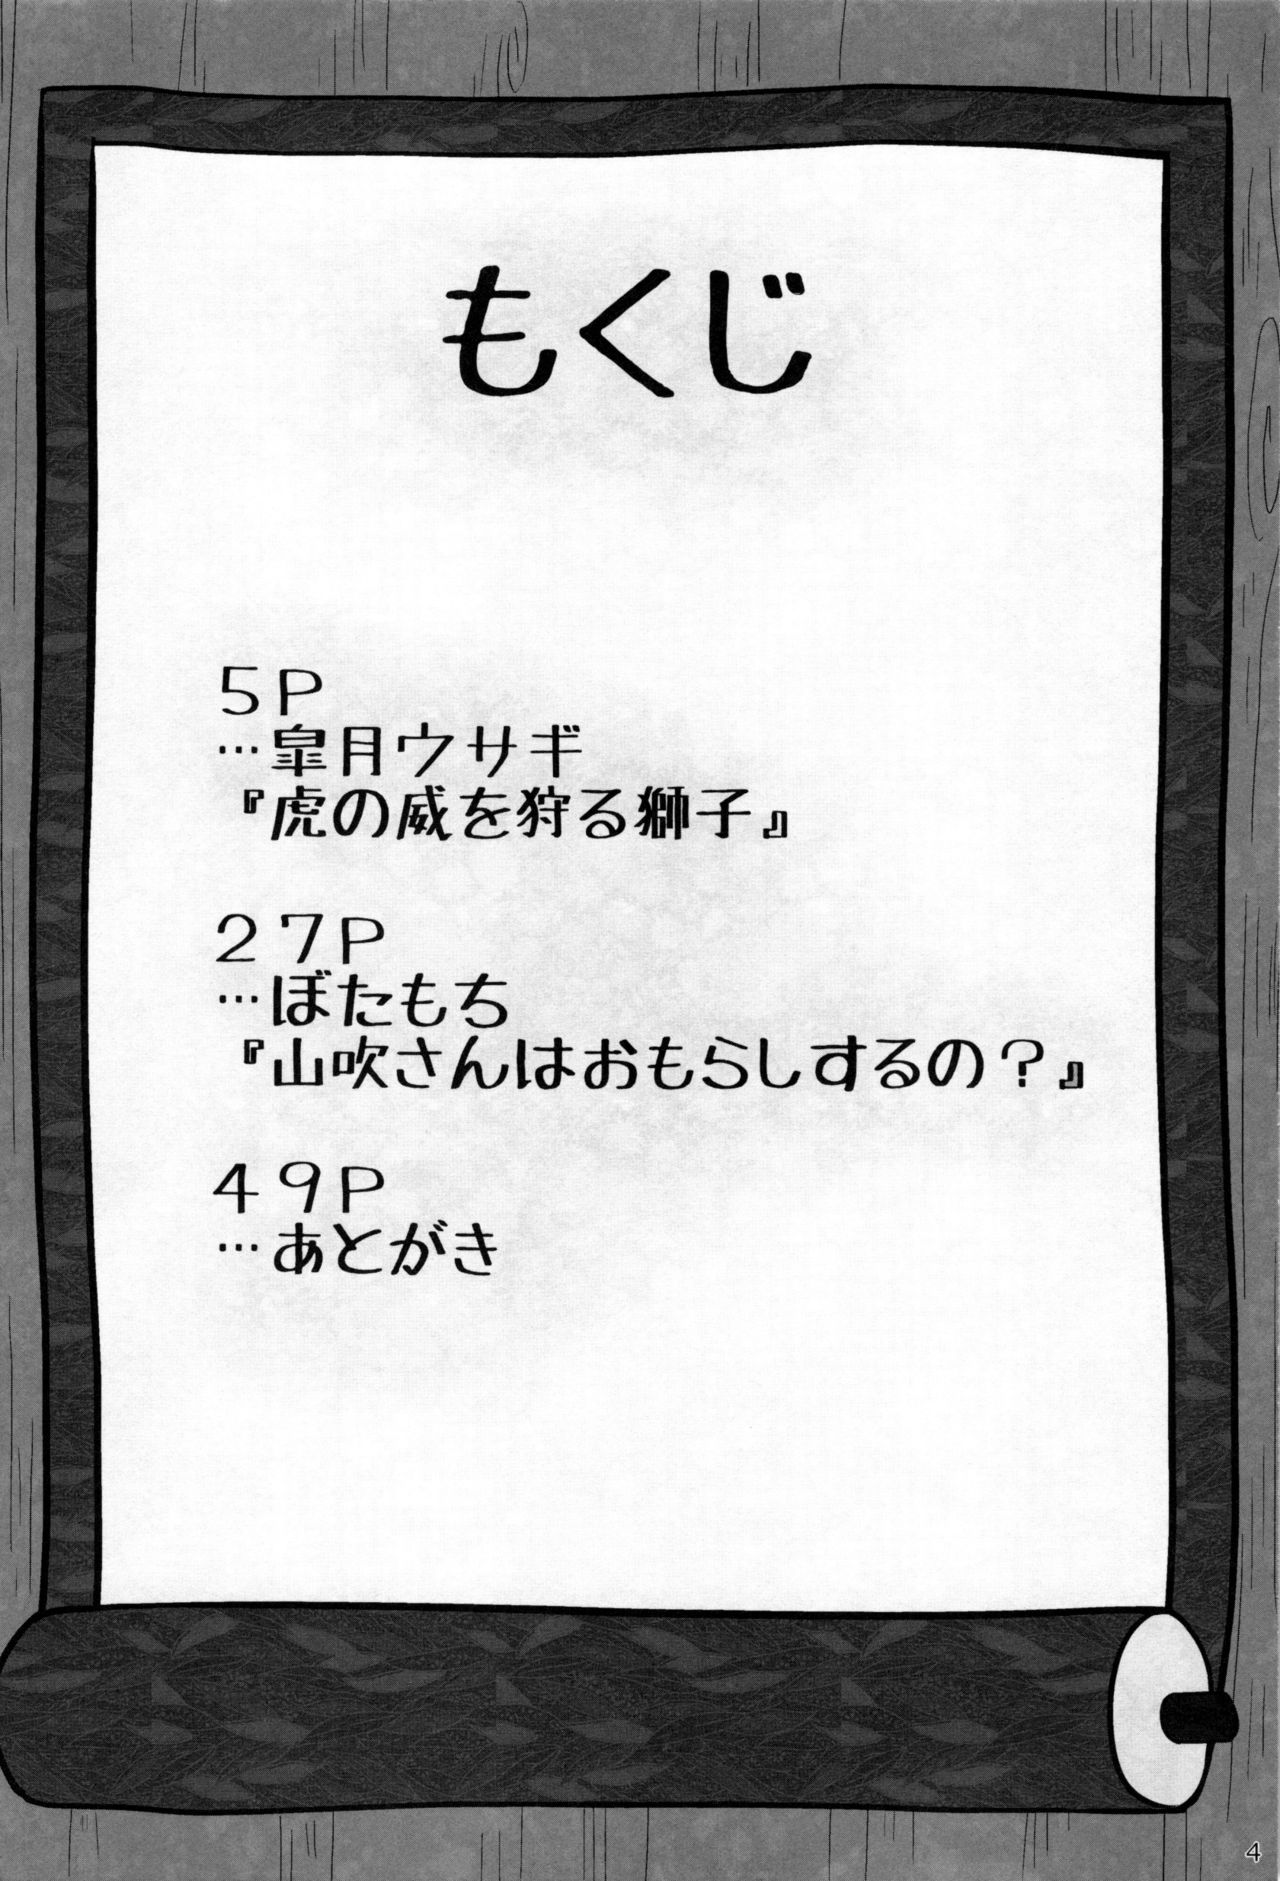 もくじ
５Ｐ
…皐月ウサギ
『虎の威を狩る獅子』
２７Ｐ
…ぼたもち
『山吹さんはおもらしするの？』
４９Ｐ
…あとがき
4